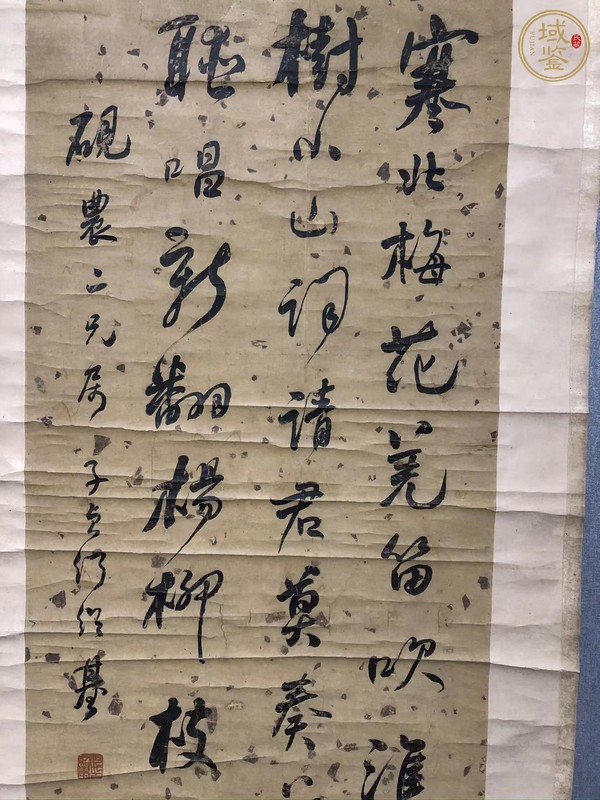 塞北梅花羌笛吹淮
樹小山詞請君莫奏
聽唱新翻楊柳枝
硯農二兄屬 子貞何紹基
域鉴
YUJIAN